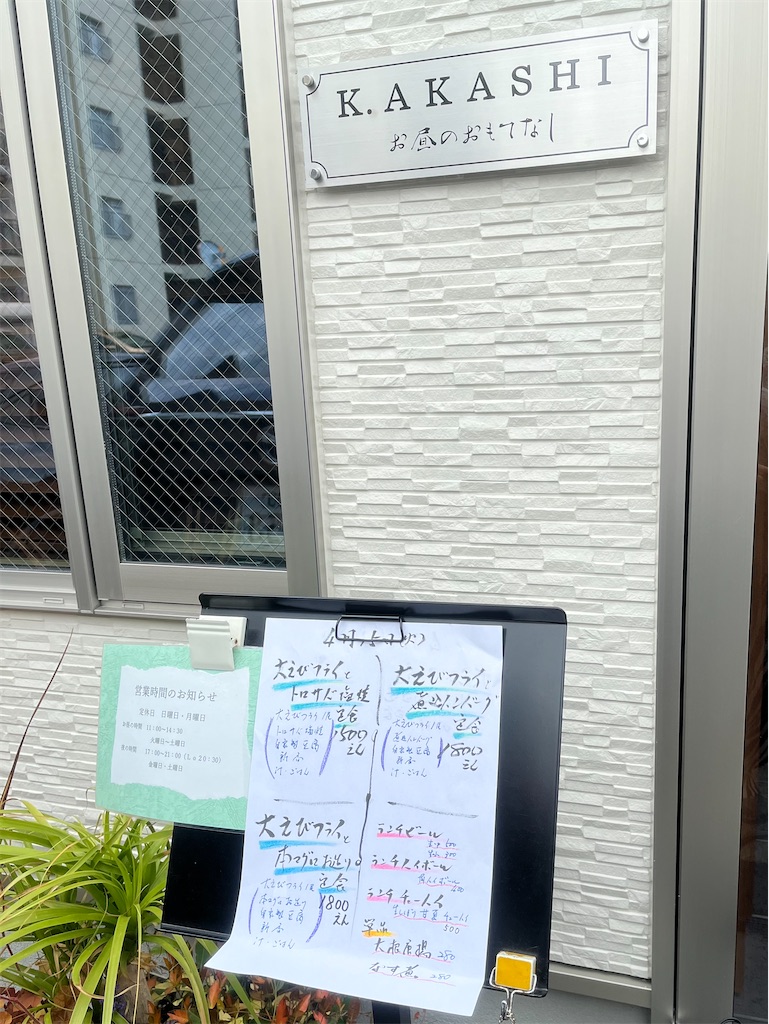 K. AKASHI
お昼のおもてなし
営業時間のお知らせ
定休日 日曜日・月曜日
お昼の時間 11:00〜14:30
火曜日〜土曜日
夜の時間 17:00〜21:00 (L.o 20:30)
金曜日・土曜日
大えびフライと
トロサバ塩焼
定食
大えびフライ1尾
トロサバ塩焼
自家製豆腐
新香
汁・ごはん
1500
えん
大えびフライと
煮込ハンバーグ
定食
大えびフライ1尾
煮込ハンバーグ
自家製豆腐
新香
汁・ごはん
1800
えん
大えびフライと
本マグロお造り
定食
大えびフライ1尾
本マグロお造り
自家製豆腐
新香
汁・ごはん
1800
えん
ランチビール
ランチハイボール
ランチチューハイ
500
単品
大根唐揚 280
なす煮 280